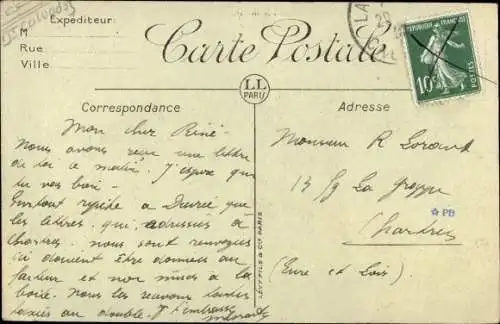 Expéditeur:
M
Rue
Ville
Carte Postale
REPUBLIQUE FRANÇAISE
10c
POSTES
LL
PARIS
Correspondance
Adresse
Mon cher René
Nous avons reçu une lettre
de toi ce matin. J'espère que
tu vas bien
Surtout répète à que
les lettres, qui, adressées à
Chartres, nous sont renvoyées
ici doivent être données au
facteur et non mises à la
boîte. Nous les
au double. J t'embrasse
Monsieur R Lorant
13 fg La Grappe
Chartres
(Eure et Loir)
PB
LEVY FILS & Cie PARIS